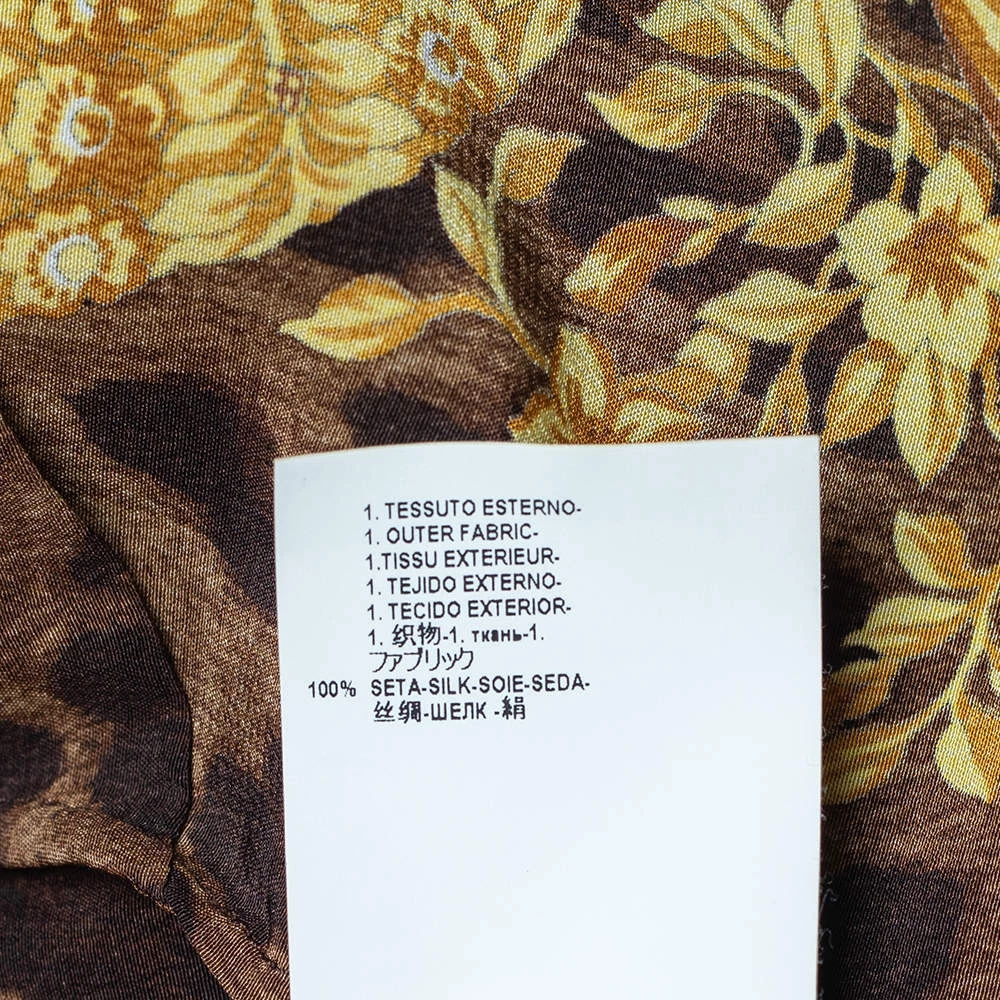 1. TESSUTO ESTERNO-
1. OUTER FABRIC-
1.TISSU EXTERIEUR-
1. TEJIDO EXTERNO-
1. TECIDO EXTERIOR-
1. 织物-1. ткань-1.
ファブリック
100% SETA-SILK-SOIE-SEDA-
丝绸-ШЕЛК -絹